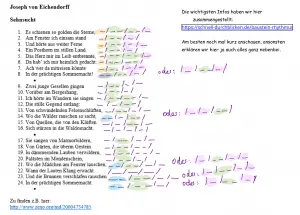 Joseph von Eichendorff
Sehnsucht
1. Es schienen so golden die Sterne,
2. Am Fenster ich einsam stand
3. Und hörte aus weiter Ferne
4. Ein Posthorn im stillen Land.
5. Das Herz mir im Leib entbrennte,
6. Da hab' ich mir heimlich gedacht:
7. Ach wer da mitreisen könnte
8. In der prächtigen Sommernacht!
9. Zwei junge Gesellen gingen
10. Vorüber am Bergeshang,
11. Ich hörte im Wandern sie singen
12. Die stille Gegend entlang:
13. Von schwindelnden Felsenschlüften,
14. Wo die Wälder rauschen so sacht,
15. Von Quellen, die von den Klüften
16. Sich stürzen in die Waldesnacht.
17. Sie sangen von Marmorbildern,
18. Von Gärten, die überm Gestein
19. In dämmernden Lauben verwildern,
20. Palästen im Mondenschein,
21. Wo die Mädchen am Fenster lauschen,
22. Wann der Lauten Klang erwacht
23. Und die Brunnen verschlafen rauschen
24. In der prächtigen Sommernacht.
Zu finden z.B. hier:
Die wichtigsten Infos haben wir hier
zusammengestellt:
Am besten noch mal kurz anschauen, ansonsten
erklären wir hier ja auch alles ganz nebenbei.
oder:
oder:
oder:
oder:
oder: